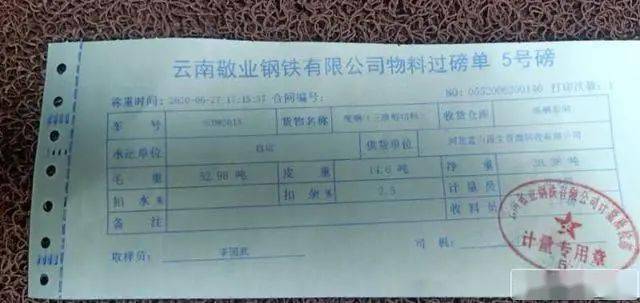 云南敬业钢铁有限公司物料过磅单 5号磅
称重时间: 2020-06-27 17:15:37 合同编号: NO: 0552006200140 打印次数: 1
车 号 货物名称 收货仓库
承运单位 自运 供货单位
毛 重 52.98 吨 皮 重 14.6 吨 净 重 38.38 吨
扣 水% 扣 杂% 2.5 计 量 员
备 注 收 料 员
取样员: 李国武 司 机:
钢铁有限公司计量
计量专用章
5